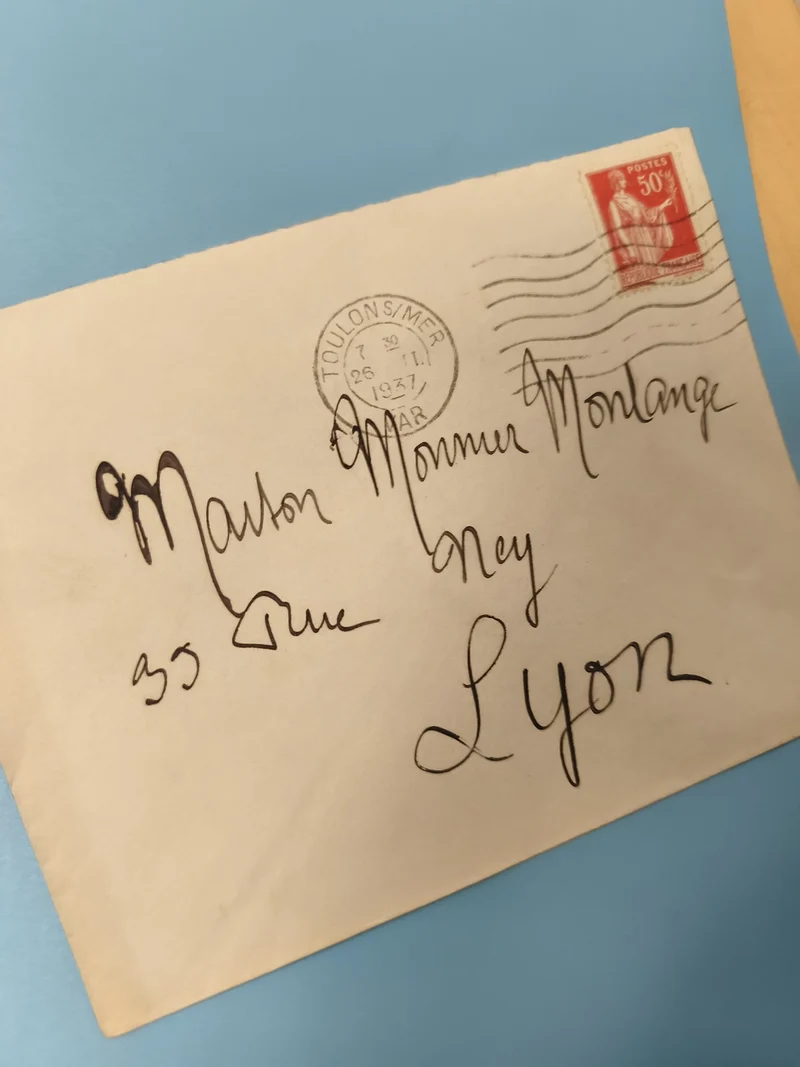 POSTES
50c
REPUBLIQUE FRANÇAISE
TOULON S/MER
7 30
26 II.
1937
VAR
Maison Monnier Montange
33 Rue Ney
Lyon